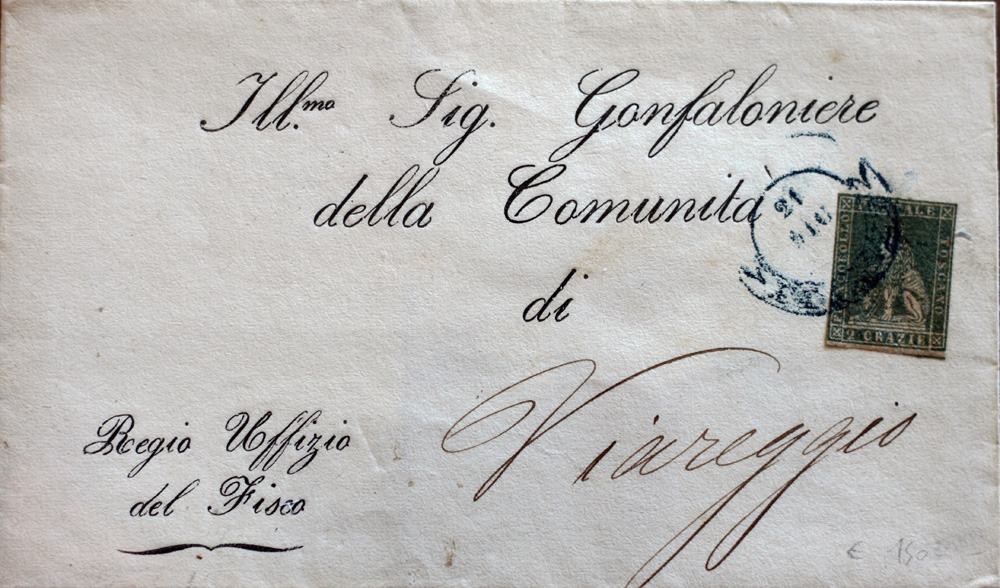 Ill.mo Sig. Gonfaloniere
della Comunita
di
Viareggio
Regio Uffizio
del Fisco
21
FRANCOBOLLO POSTALE TOSCANO
2 CRAZIE
€ 150